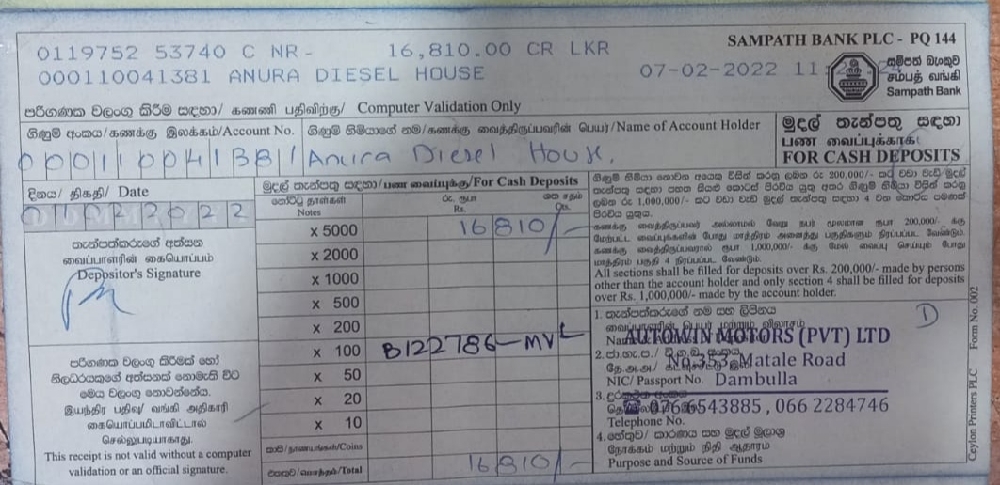 0119752 53740 C NR - 16,810.00 CR LKR
SAMPATH BANK PLC - PQ 144
000110041381 ANURA DIESEL HOUSE 07-02-2022 11:
සම්පත් බැංකුව
சம்பத் வங்கி
Sampath Bank
පරිගණක වලංගු කිරීම සඳහා/ கணணி பதிவிற்கு/ Computer Validation Only
ගිණුම් අංකය/கணக்கு இலக்கம்/Account No.
ගිණුම් හිමියාගේ නම/கணக்கு வைத்திருப்பவரின் பெயர்/Name of Account Holder
000110041381 Anura Diesel House.
මුදල් තැන්පතු සඳහා
பண வைப்புக்காக
FOR CASH DEPOSITS
දිනය/ திகதி/ Date
07022022
මුදල් තැන්පතු සඳහා/பண வைப்புக்கு/For Cash Deposits
නෝට්ටු/தாள்கள்
Notes
රු. ரூபா
Rs.
ශත சதம்
Cts.
x 5000 16810/-
x 2000
x 1000
x 500
x 200
x 100 B122786-MVL
x 50
x 20
x 10
කාසි/நாணயங்கள்/Coins
එකතුව/மொத்தம்/Total 16810/-
තැන්පත්කරුගේ අත්සන
வைப்பாளரின் கையொப்பம்
Depositor's Signature
පරිගණක වලංගු කිරීමක් හෝ
නිලධරයකුගේ අත්සනක් නොමැති විට
මෙය වලංගු නොවන්නේය.
இயந்திர பதிவு/ வங்கி அதிகாரி
கையொப்பமிடாவிட்டால்
செல்லுபடியாகாது.
This receipt is not valid without a computer
validation or an official signature.
All sections shall be filled for deposits over Rs. 200,000/- made by persons
other than the account holder and only section 4 shall be filled for deposits
over Rs. 1,000,000/- made by the account holder.
1. තැන්පත්කරුගේ නම සහ ලිපිනය
வைப்பாளரின் பெயர் மற்றும் விலாசம்
D
AUTOWIN MOTORS (PVT) LTD
No.353, Matale Road
NIC/Passport No. Dambulla
076 6543885, 066 2284746
Telephone No.
4. හේතුව/ කාරණය සහ මුදල් මූලාශ්‍ර
நோக்கம் மற்றும் நிதி ஆதாரம்
Purpose and Source of Funds
Ceylon Printers PLC Form No. 002